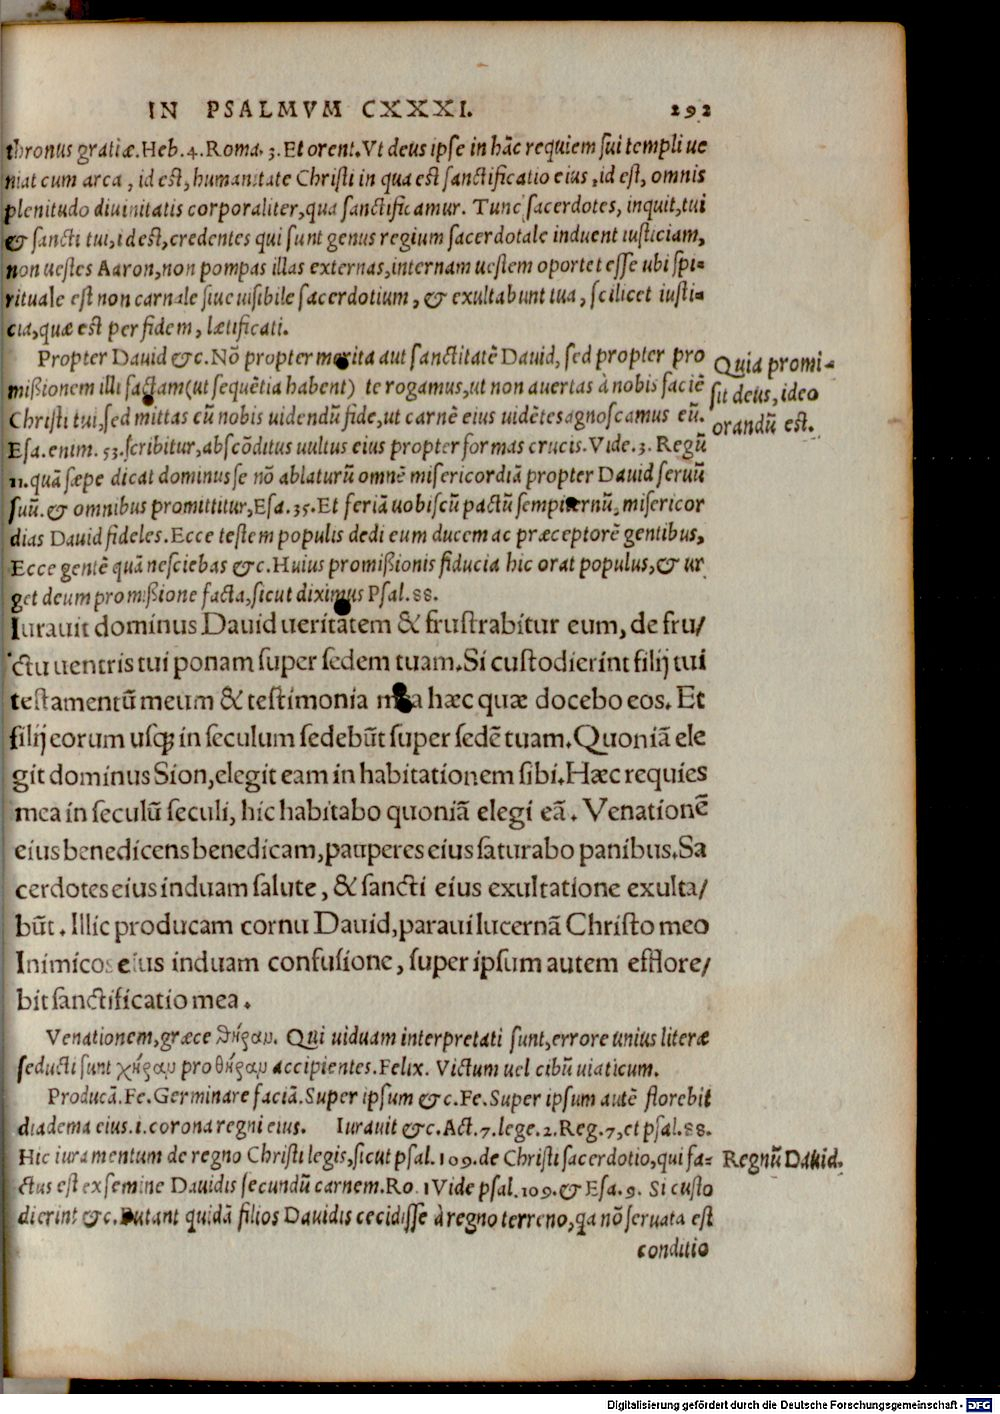 IN PSALMVM CXXXI. 292
thronus gratiæ. Heb. 4. Roma. 3. Et orent. Vt deus ipse in hāc requiem sui templi ue
niat cum arca, id est, humanitate Christi in qua est sanctificatio eius, id est, omnis
plenitudo diuinitatis corporaliter, qua sanctificamur. Tunc sacerdotes, inquit, tui
& sancti tui, id est, credentes qui sunt genus regium sacerdotale induent iusticiam,
non uestes Aaron, non pompas illas externas, internam uestem oportet esse ubi spi-
rituale est non carnale siue uisibile sacerdotium, & exultabunt tua, scilicet iusti-
cia, quæ est per fidem, lætificati.
Propter Dauid &c. Nō propter merita aut sanctitatē Dauid, sed propter pro
missionem illi factam (ut sequētia habent) te rogamus, ut non auertas à nobis faciē
Christi tui, sed mittas eū nobis uidendū fide, ut carnē eius uidētes agnoscamus eū.
Esa. enim. 53. scribitur, abscōditus uultus eius propter formas crucis. Vide. 3. Regū
11. quā sæpe dicat dominus se nō ablaturū omnē misericordiā propter Dauid seruū
suū. & omnibus promittitur, Esa. 35. Et feriā uobiscū pactū sempiternū, misericor
dias Dauid fideles. Ecce testem populis dedi eum ducem ac præceptorē gentibus,
Ecce gentē quā nesciebas &c. Huius promissionis fiducia hic orat populus, & ur
get deum promissione facta, sicut diximus Psal. 88.
Quia promi-
sit deus, ideo
orandū est.
Iurauit dominus Dauid ueritatem & frustrabitur eum, de fru/
ctu uentris tui ponam super sedem tuam. Si custodierint filij tui
testamentū meum & testimonia mea hæc quæ docebo eos. Et
filij eorum usq; in seculum sedebūt super sedē tuam. Quoniā ele
git dominus Sion, elegit eam in habitationem sibi. Hæc requies
mea in seculū seculi, hic habitabo quoniā elegi eā. Venationē
eius benedicens benedicam, pauperes eius saturabo panibus. Sa
cerdotes eius induam salute, & sancti eius exultatione exulta/
būt. Illic producam cornu Dauid, paraui lucernā Christo meo
Inimicos eius induam confusione, super ipsum autem efflore/
bit sanctificatio mea.
Venationem, græce θήραμ. Qui uiduam interpretati sunt, errore unius literæ
seducti sunt χήραμ pro θήραμ accipientes. Felix. Victum uel cibū uiaticum.
Producā. Fe. Germinare faciā. Super ipsum &c. Fe. Super ipsum autē florebit
diadema eius. i. corona regni eius. Iurauit &c. Act. 7. lege. 2. Reg. 7, et psal. 88.
Hic iuramentum de regno Christi legis, sicut psal. 109. de Christi sacerdotio, qui fa-
ctus est ex semine Dauidis secundū carnem. Ro. 1 Vide psal. 109. & Esa. 9. Si custo
dierint &c. Putant quidā filios Dauidis cecidisse à regno terreno, qa nō seruata est
Regnū Dauid.
conditio
Digitalisierung gefördert durch die Deutsche Forschungsgemeinschaft - DFG